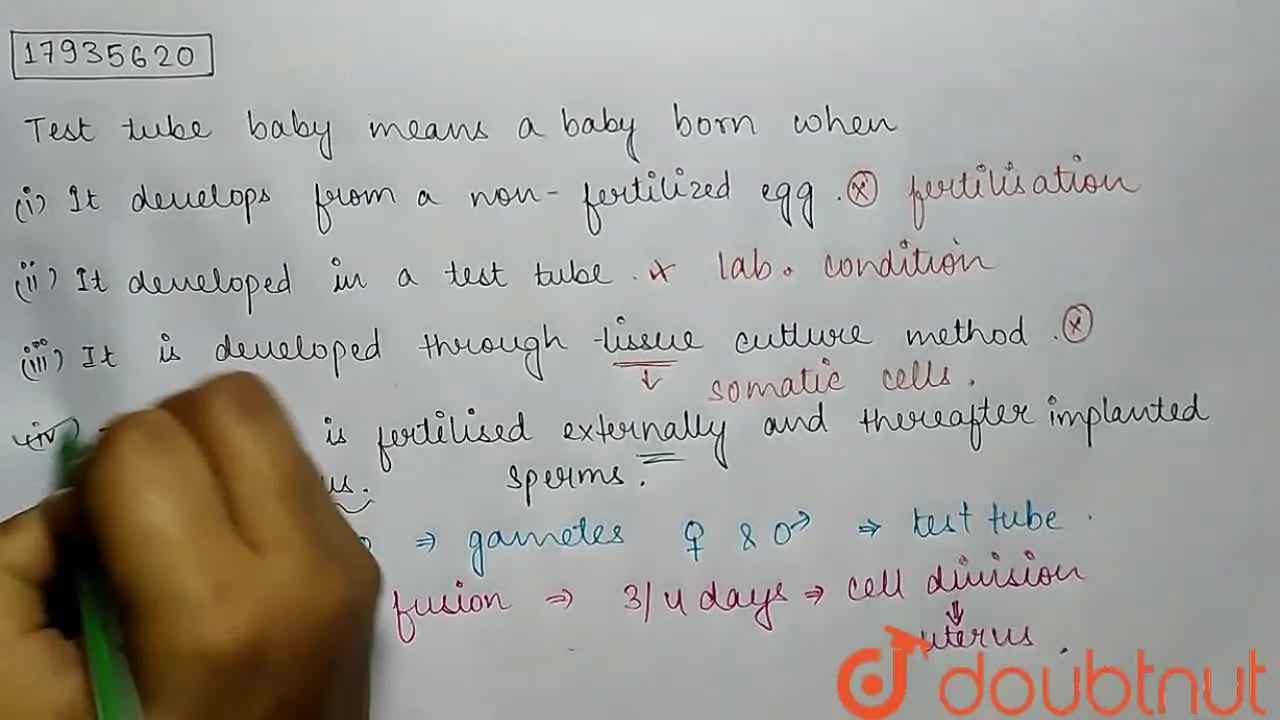 17935620
Test tube baby means a baby born when
(i) It develops from a non-fertilized egg. (x) fertilisation
(ii) It developed in a test tube. x lab. condition
(iii) It is developed through tissue culture method. (x)
↓ somatic cells.
(iv) is fertilised externally and thereafter implanted
us. sperms.
⇒ gametes ♀ & ♂ ⇒ test tube.
fusion ⇒ 3/4 days ⇒ cell division
⇓
uterus.
doubtnut